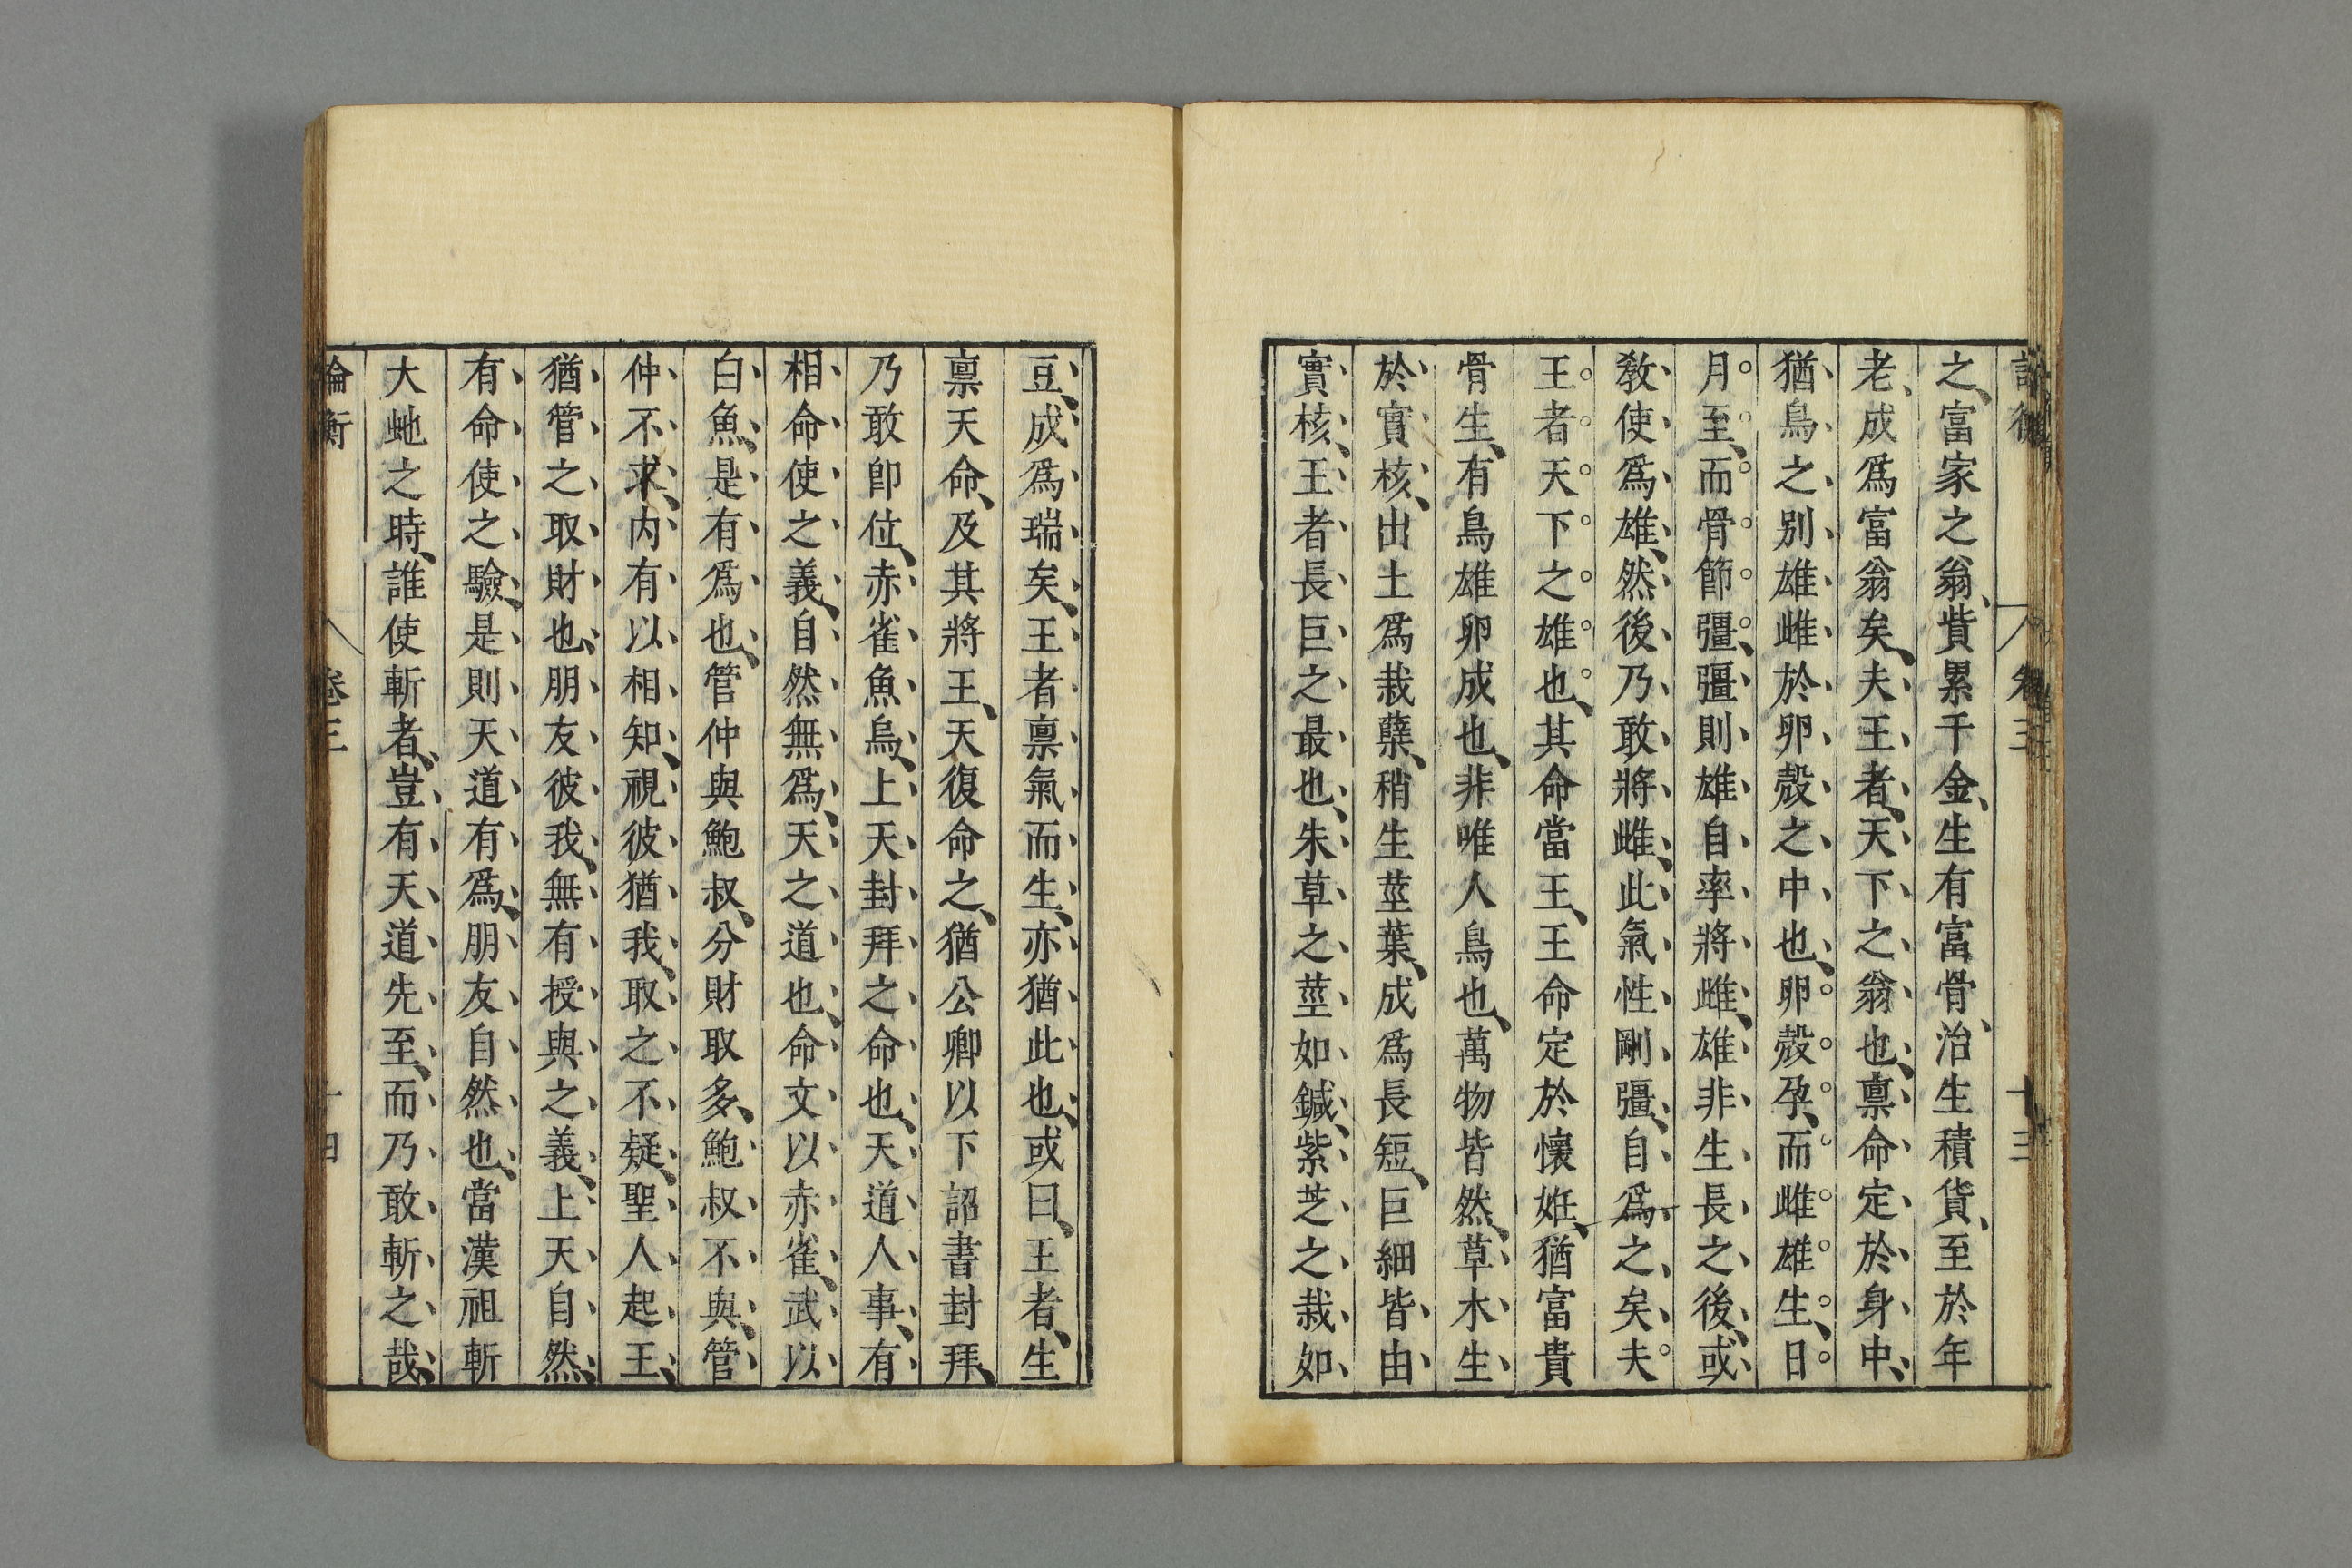 之、富家之翁、貲累千金、生有富骨、治生積貨、至於年
老、成爲富翁矣、夫王者、天下之翁也、禀命定於身中、
猶鳥之別雄雌於卵殻之中也、卵殻孕、而雌雄生、日
月至、而骨節彊、彊則雄自率將雌、雄非生長之後、或
敎使爲雄、然後乃敢將雌、此氣性剛彊、自爲之矣、夫
王者天下之雄也、其命當王、王命定於懷姙、猶富貴
骨生、有鳥雄卵成也、非唯人鳥也、萬物皆然、草木生
於實核、出土爲栽蘖、稍生莖葉、成爲長短、巨細皆由
實核、王者長巨之最也、朱草之莖如鍼、紫芝之栽如
豆、成爲瑞矣、王者禀氣而生、亦猶此也、或曰、王者、生
禀天命、及其將王、天復命之、猶公卿以下詔書封拜、
乃敢卽位、赤雀魚烏、上天封拜之命也、天道人事、有
相命使之義、自然無爲、天之道也、命文以赤雀、武以
白魚、是有爲也、管仲與鮑叔、分財取多、鮑叔不與、管
仲不求、内有以相知、視彼猶我、取之不疑、聖人起王、
猶管之取財也、朋友彼我、無有授與之義、上天自然、
有命使之驗、是則天道有爲、朋友自然也、當漢祖斬
大虵之時、誰使斬者、豈有天道先至、而乃敢斬之哉、
論衡 卷三 十四